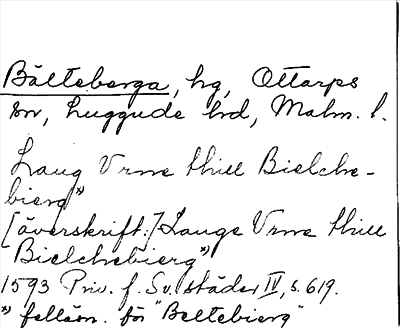 Bälteberga, hg, Ottarps
sn, Luggude hd, Malm. l.
Laug Vrne thill Bielche-
bierg*)
[överskrift:] Lauge Vrne thill
Bielchebierg*)
1593 Priv. f. Sv. städer IV, s. 619.
*) felläsn. för "Beltebierg"